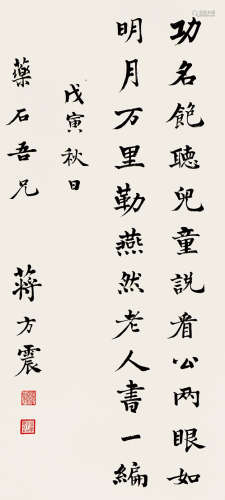 功名飽聽兒童說看公两眼如
明月万里勒燕然老人書一編
戊寅秋日
藥石吾兄
蔣方震